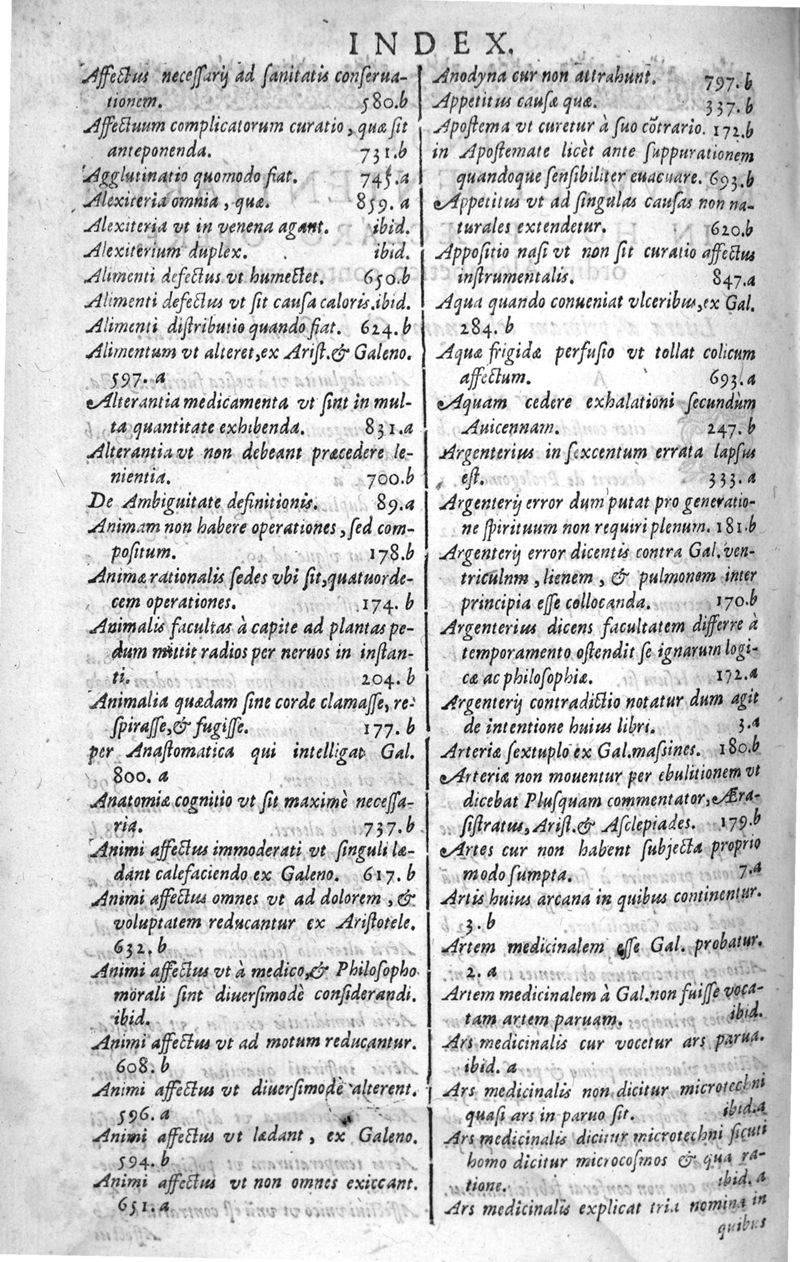 INDEX.
Affectus necessarij ad sanitatis conserua-
tionem. 580.b
Affectuum complicatorum curatio, quæ sit
anteponenda. 731.b
Agglutinatio quomodo fiat. 745.a
Alexiteria omnia, quæ. 859.a
Alexiteria vt in venena agant. ibid.
Alexiterium duplex. ibid.
Alimenti defectus vt humectet. 650.b
Alimenti defectus vt sit causa caloris. ibid.
Alimenti distributio quando fiat. 624.b
Alimentum vt alteret, ex Arist. & Galeno.
597.a
Alterantia medicamenta vt sint in mul-
ta quantitate exhibenda. 831.a
Alterantia vt non debeant præcedere le-
nientia. 700.b
De Ambiguitate definitionis. 89.a
Animam non habere operationes, sed com-
positum. 178.b
Animæ rationalis sedes vbi sit, quatuorde-
cem operationes. 174.b
Animalis facultas à capite ad plantas pe-
dum mittit radios per neruos in instan-
ti. 204.b
Animalia quædam sine corde clamasse, re-
spirasse, & fugisse. 177.b
per Anastomatica qui intelligat Gal.
800.a
Anatomiæ cognitio vt sit maximè necessa-
ria. 737.b
Animi affectus immoderati vt singuli læ-
dant calefaciendo ex Galeno. 617.b
Animi affectus omnes vt ad dolorem, &
voluptatem reducantur ex Aristotele.
632.b
Animi affectus vt à medico, & Philosopho
morali sint diuersimodè considerandi.
ibid.
Animi affectus vt ad motum reducantur.
608.b
Animi affectus vt diuersimodè alterent.
596.a
Animi affectus vt lædant, ex Galeno.
594.b
Animi affectus vt non omnes exiccant.
651.a
Anodyna cur non attrahunt. 797.b
Appetitus causæ quæ. 337.b
Apostema vt curetur à suo cõtrario. 172.b
in Apostemate licèt ante suppurationem
quandoque sensibiliter euacuare. 693.b
Appetitus vt ad singulas causas non na-
turales extendetur. 620.b
Appositio nasi vt non sit curatio affectus
instrumentalis. 847.a
Aqua quando conueniat vlceribus, ex Gal.
284.b
Aquæ frigidæ perfusio vt tollat colicum
affectum. 693.a
Aquam cedere exhalationi secundùm
Auicennam. 247.b
Argenterius in sexcentum errata lapsus
est. 333.a
Argenterij error dum putat pro generatio-
ne spirituum non requiri plenum. 181.b
Argenterij error dicentis contra Gal. ven-
triculnm, lienem, & pulmonem inter
principia esse collocanda. 170.b
Argenterius dicens facultatem differre à
temperamento ostendit se ignarum logi-
cæ ac philosophiæ. 172.a
Argenterij contradictio notatur dum agit
de intentione huius libri. 3.a
Arteriæ sextuplo ex Gal. massiines. 180.b
Arteriæ non mouentur per ebulitionem vt
dicebat Plusquam commentator, Æra-
sistratus, Arist. & Asclepiades. 179.b
Artes cur non habent subjecta proprio
modo sumpta. 7.a
Artis huius arcana in quibus continentur.
3.b
Artem medicinalem esse Gal. probatur.
2.a
Artem medicinalem à Gal. non fuisse voca-
tam artem paruam. ibid.
Ars medicinalis cur vocetur ars parua.
ibid. a
Ars medicinalis non dicitur microtechni
quasi ars in paruo sit. ibid.a
Ars medicinalis dicitur microtechni sicuti
homo dicitur microcosmos & qua ra-
tione. ibid. a
Ars medicinalis explicat tria nomina in
quibus